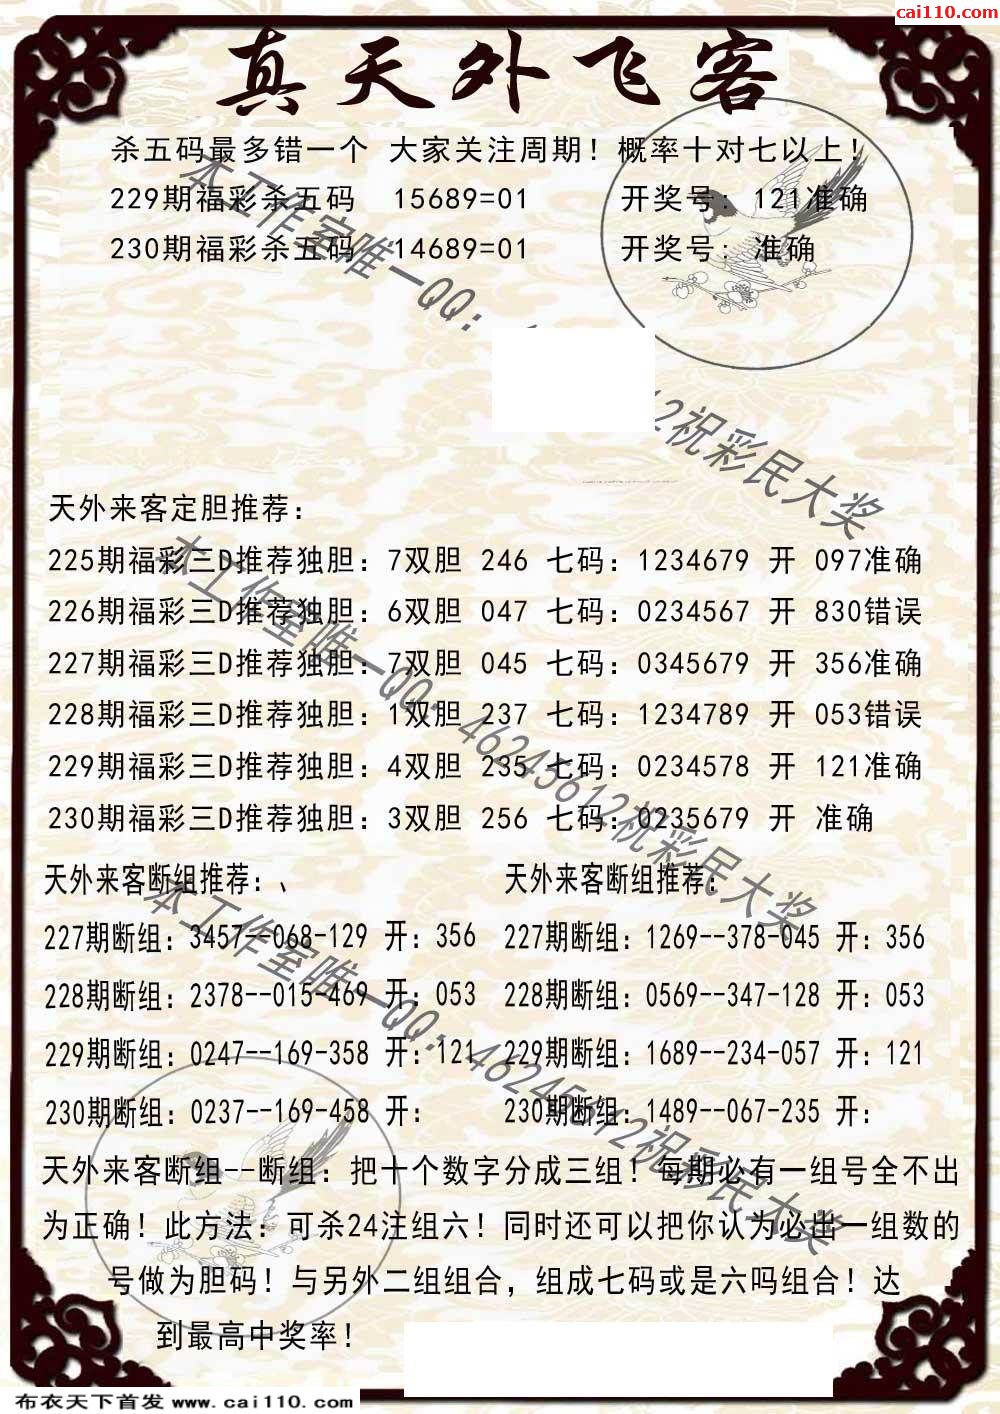 cai110.com
真天外飞客
杀五码最多错一个 大家关注周期！概率十对七以上！
229期福彩杀五码 15689=01 开奖号: 121准确
230期福彩杀五码 14689=01 开奖号: 准确
本工作室唯一QQ: 12祝彩民大奖
天外来客定胆推荐:
225期福彩三D推荐独胆: 7双胆 246 七码: 1234679 开 097准确
226期福彩三D推荐独胆: 6双胆 047 七码: 0234567 开 830错误
227期福彩三D推荐独胆: 7双胆 045 七码: 0345679 开 356准确
228期福彩三D推荐独胆: 1双胆 237 七码: 1234789 开 053错误
229期福彩三D推荐独胆: 4双胆 235 七码: 0234578 开 121准确
230期福彩三D推荐独胆: 3双胆 256 七码: 0235679 开 准确
本工作室唯一QQ: 46245612祝彩民大奖
天外来客断组推荐:、
227期断组: 3457--068-129 开: 356
228期断组: 2378--015-469 开: 053
229期断组: 0247--169-358 开: 121
230期断组: 0237--169-458 开:
天外来客断组推荐:
227期断组: 1269--378-045 开: 356
228期断组: 0569--347-128 开: 053
229期断组: 1689--234-057 开: 121
230期断组: 1489--067-235 开:
本工作室唯一QQ: 46245612祝彩民大奖
天外来客断组--断组: 把十个数字分成三组！每期必有一组号全不出
为正确！此方法: 可杀24注组六！同时还可以把你认为必出一组数的
号做为胆码！与另外二组组合，组成七码或是六吗组合！达
到最高中奖率！
布衣天下首发 www.cai110.com